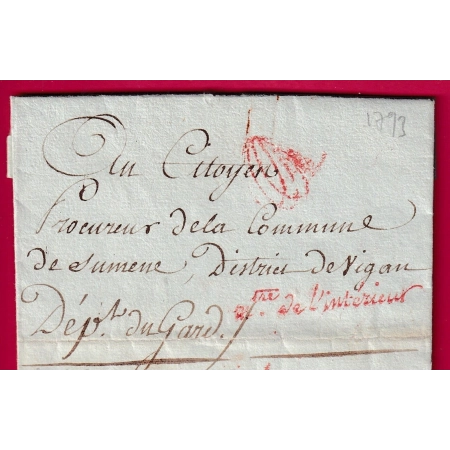 1793
Au Citoyen
Procureur de la Commune
de Sumene, District de Vigan
Mtre. de l'intérieur
Dépt. du Gard.